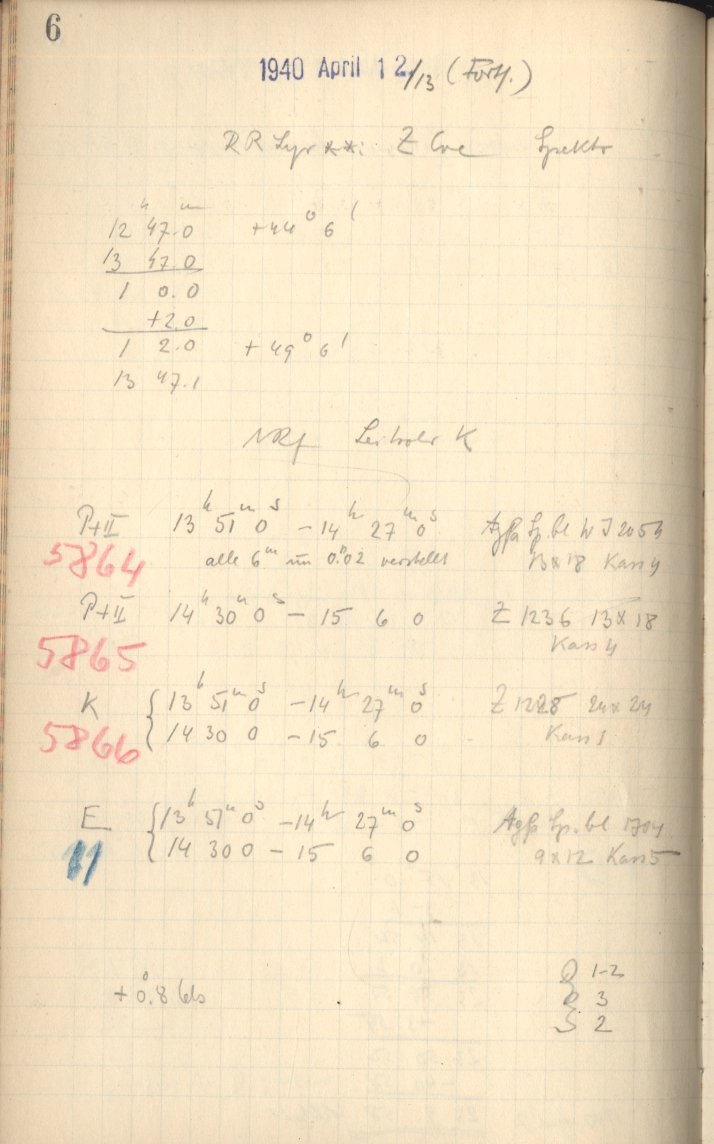 6
1940 April 12/13 (Fort.)
RR Lyr **: Z CVe Spektr
h m
12 47.0 +44° 6'
13 47.0
1 0.0
+2.0
1 2.0 +49° 6'
13 47.1
Leitrohr K
P+II 13h 51m 0s - 14h 27m 0s Agfa Sp. bl
5864 alle 6m um 0.02 verstellt 13x18 Kass 4
P+II 14h 30m 0s - 15 6 0 Z 1236 13x18
5865 Kass 4
K { 13h 51m 0s - 14h 27m 0s Z 1228 24x24
5866 14 30 0 - 15 6 0 Kass 1
E { 13h 51m 0s - 14h 27m 0s Agfa Sp. bl 1704
14 30 0 - 15 6 0 9x12 Kass 5
+0.8 bb
Q 1-2
D 3
S 2